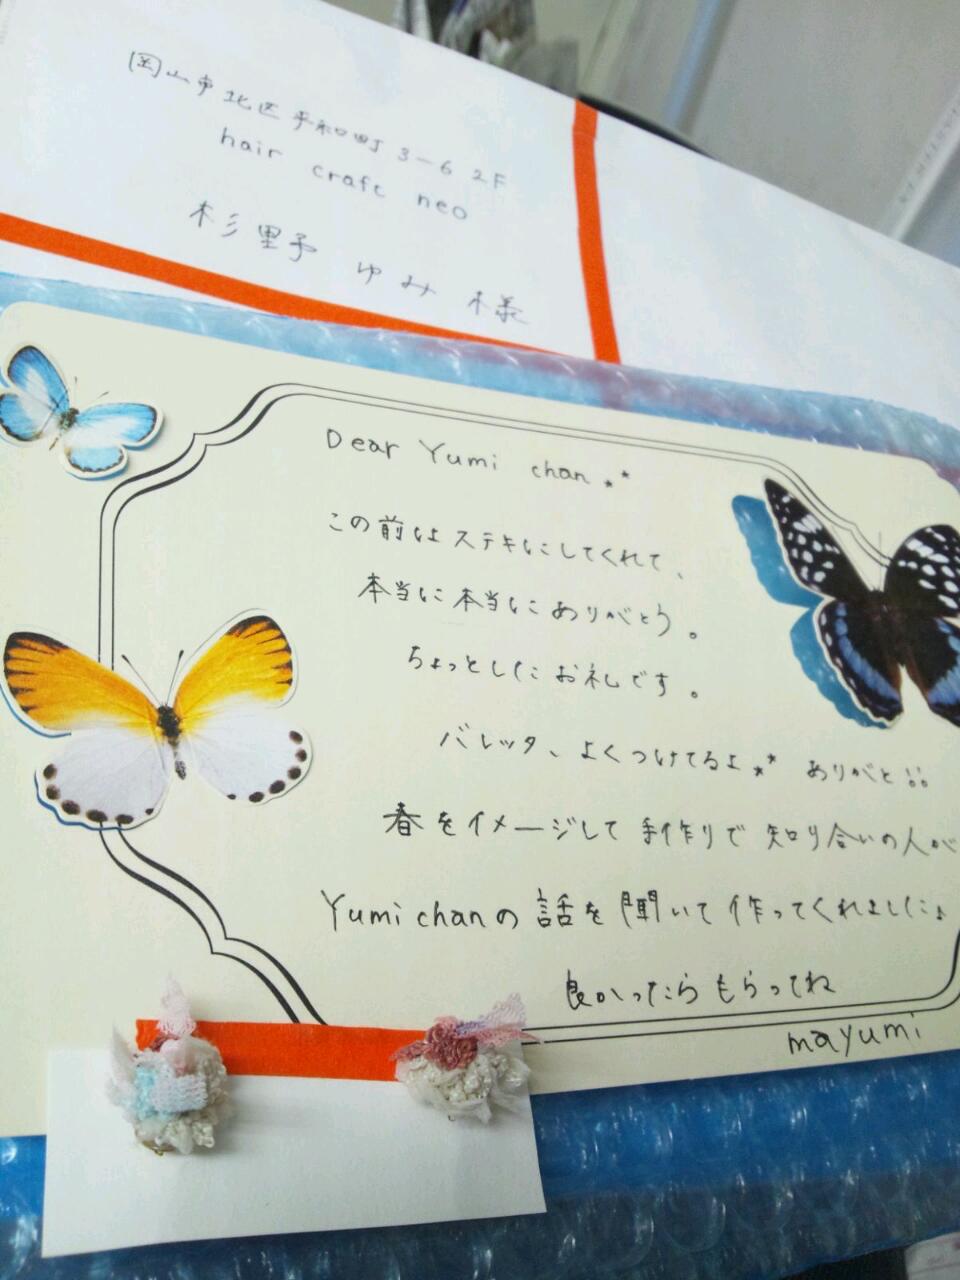 岡山市北区平和町3-6 2F
hair craft neo
杉野 ゆみ 様
Dear Yumi chan
この前はステキにしてくれて、
本当に本当にありがとう。
ちょっとしたお礼です。
バレッタ、よくつけてるよ ありがと!!
春をイメージして手作りで知り合いの人が
Yumi chanの話を聞いて作ってくれました。
良かったらもらってね
mayumi